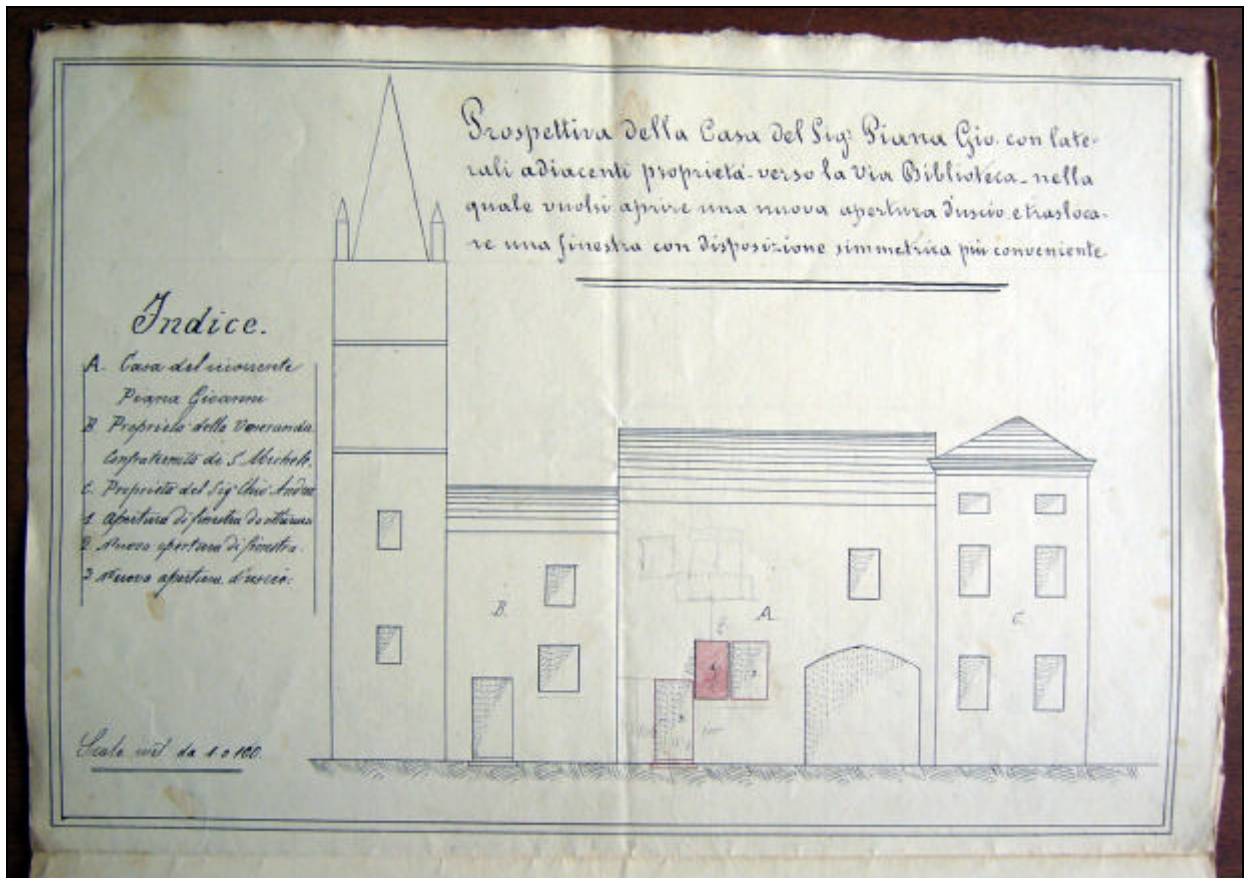 Prospettiva della Casa del Sig.r Piana Gio. con late-
rali adiacenti proprietà verso la Via Biblioteca - nella
quale vuolsi aprire una nuova apertura d'uscio, e trasloca-
re una finestra con disposizione simmetrica più conveniente
Indice.
A. Casa del ricorrente
Piana Giovanni
B Proprietà della Veneranda
Confraternita di S. Michele.
C. Proprietà del Sig.r Andrea
1 Apertura di finestra da otturarsi
2. Nuova apertura di finestra.
3 Nuova apertura d'uscio.
B.
A.
C.
1
2
3
Scala met. da 1 a 100